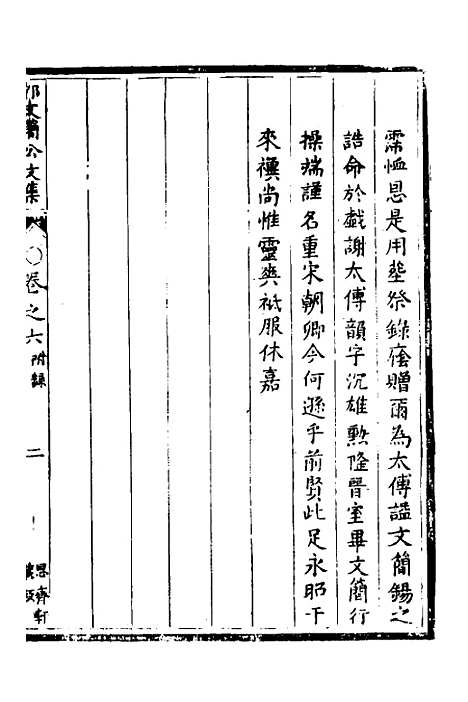 霈恤恩是用塋祭錄廕贈爾為太傅諡文簡錫之
誥命於戲謝太傅韻宇沉雄勲隆晉室畢文簡行
操端謹名重宋朝卿今何遜乎前賢此足永昭于
來禩尚惟靈爽祗服休嘉
文簡公文集
卷之六附錄
二
思齊軒